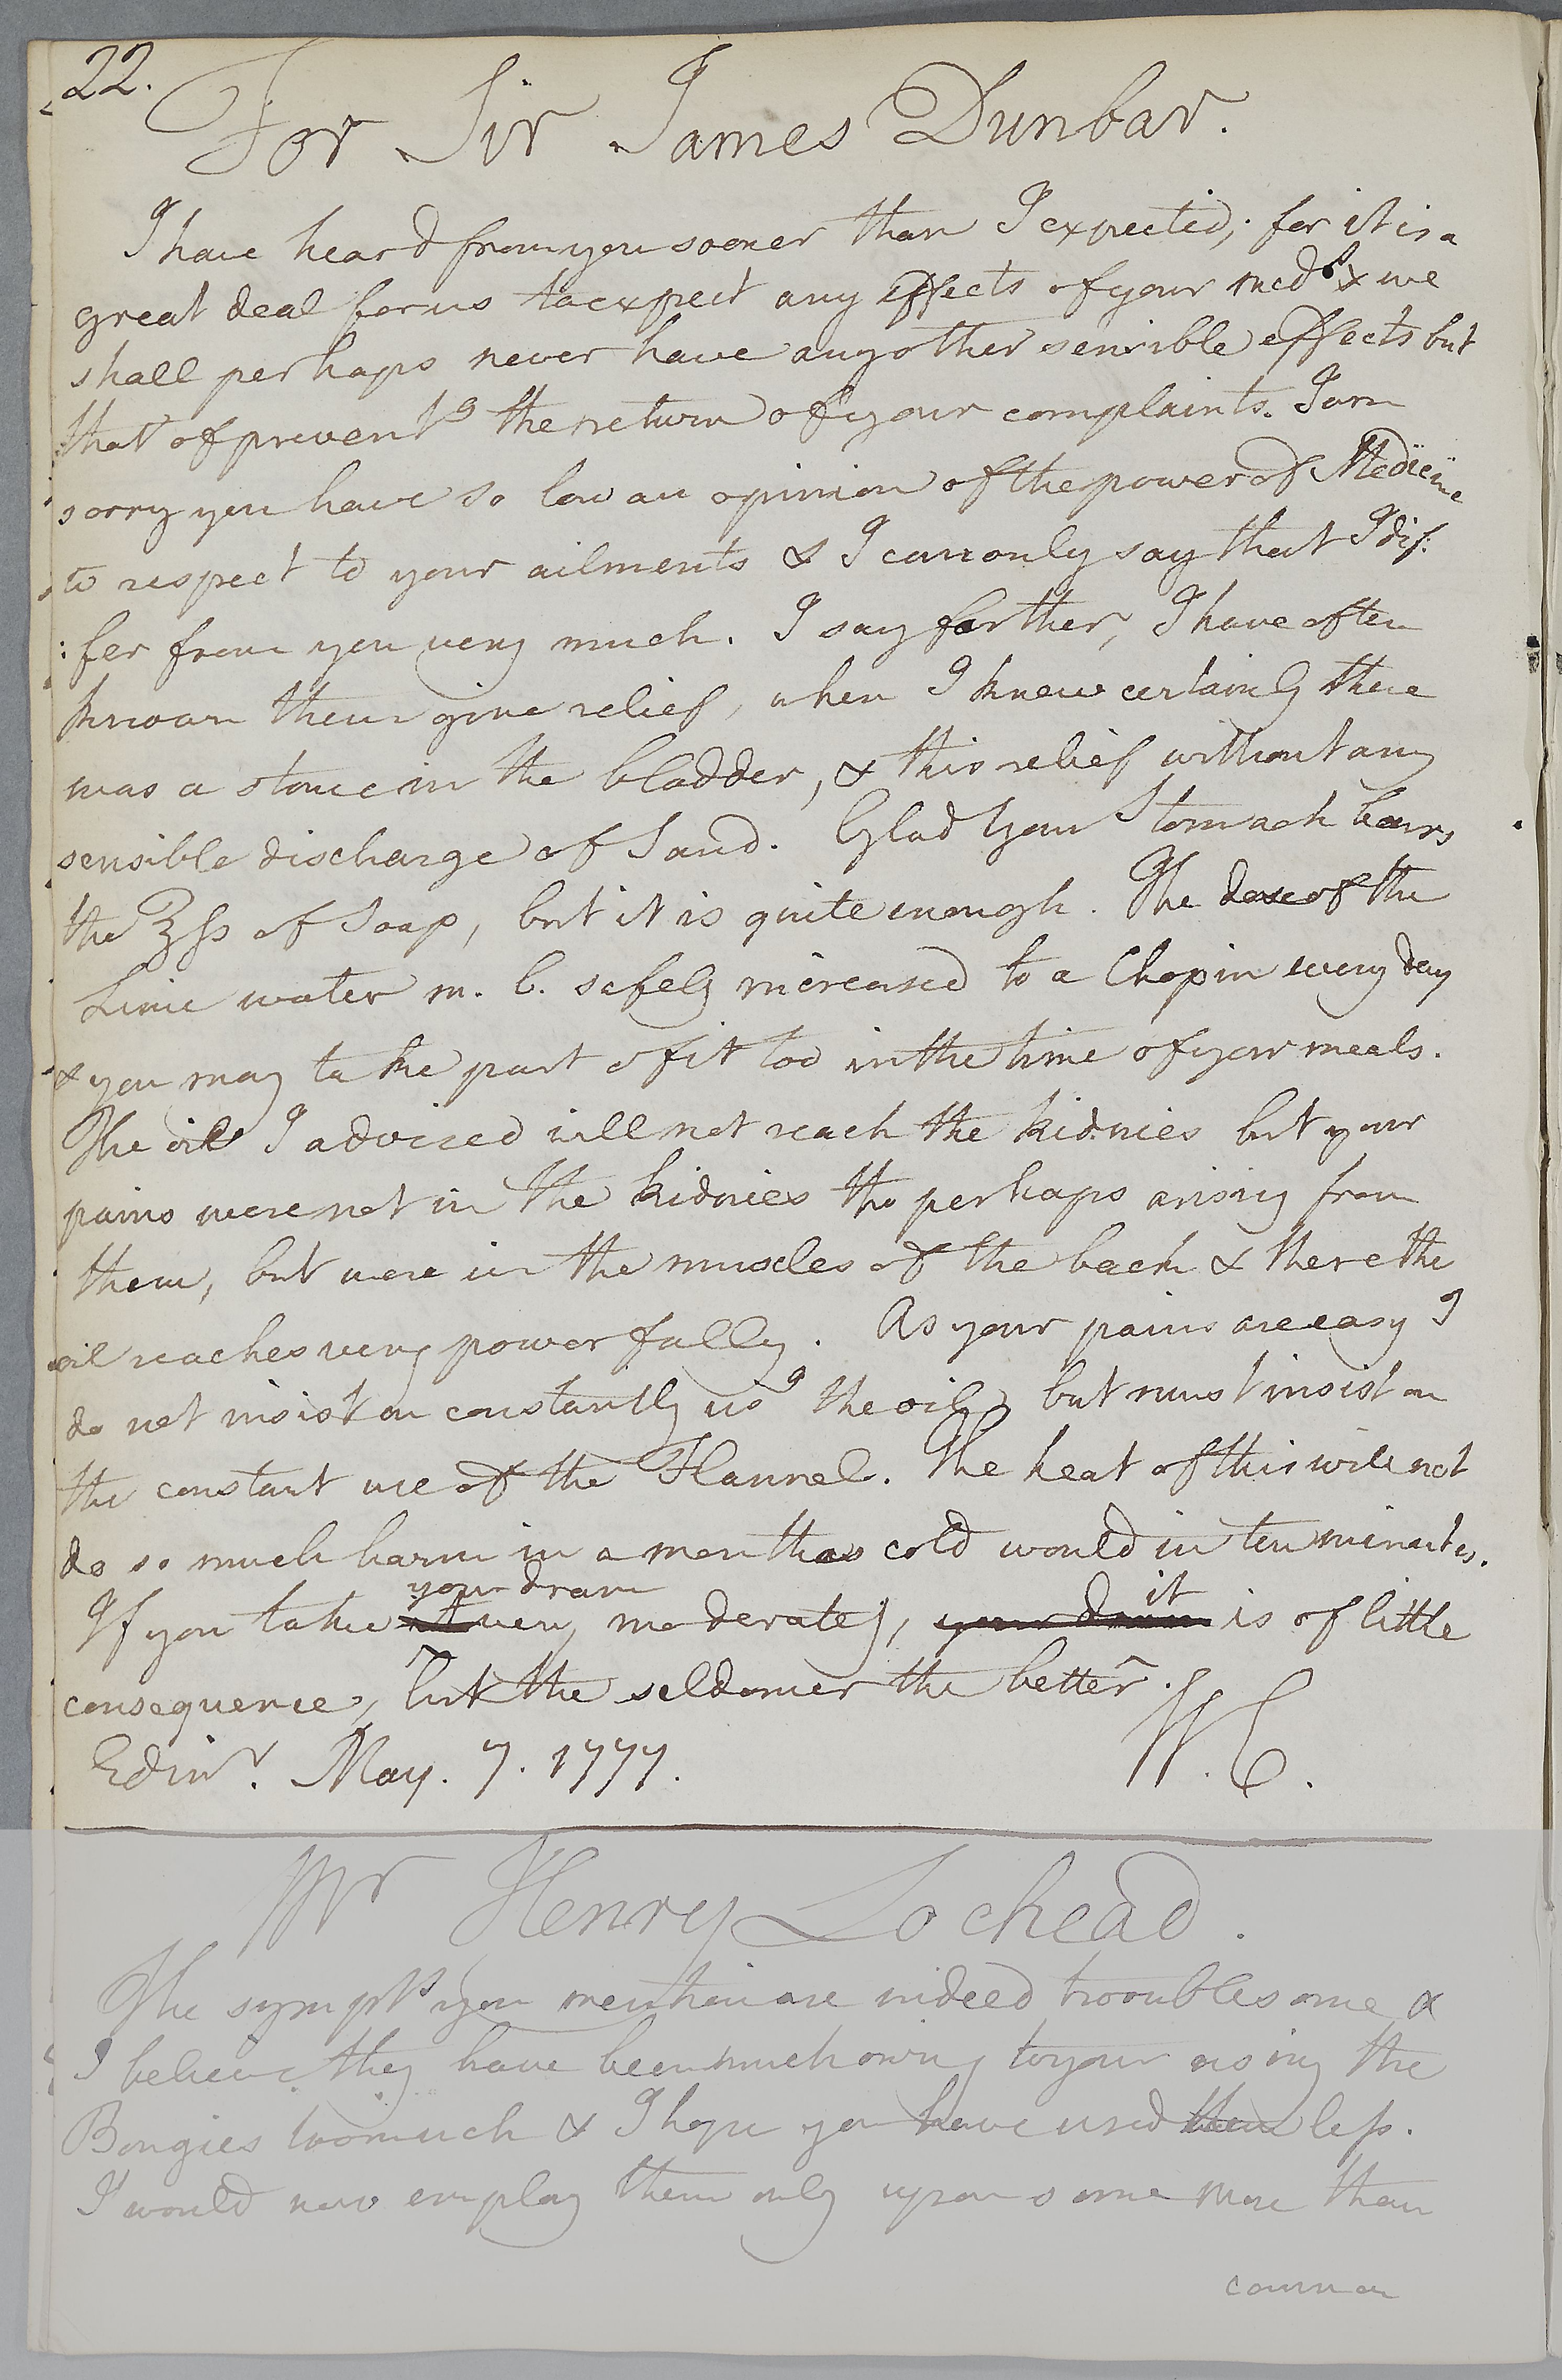 22.
For Sir James Dunbar.
I have heard from you sooner than I expected; for it is a
great deal for us to expect any effects of your medˢ & we
shall perhaps never have any other sensible effects but
that of preventᵍ the return of your complaints. I am
sorry you have so low an opinion of the power of Medicine
to respect to your ailments & I can only say that I dif:
:fer from you very much. I say farther, I have often
known them give relief, when I knew certainly there
was a stone in the bladder, & this relief without any
sensible discharge of Sand. Glad your Stomach bears
the ℥ſs of Soap, but it is quite enough. The dose of the
Lime water m. b. safely increased to a Chopin every day
& you may take part of it too in the time of your meals.
The oil I advised will not reach the kidnies but your
pains were not in the kidnies tho perhaps arising from
them, but were in the muscles of the back & there the
oil reaches very powerfully. As your pains are easy I
do not insist on constantly usᵍ the oil, but must insist on
the constant use of the Flannel. The heat of this will not
do so much harm in a month as cold would in ten minutes.
your dram it
If you take it very moderately, your dram is of little
consequence, but the seldomer the better.
Edinʳ. May. 7. 1777. W. C.
Mʳ Henry Lochead.
The symptˢ you mention are indeed troublesome &
I believe they have been much owing to your using the
Bougies too much & I hope you have used them leſs.
I would now employ them only upon some more than
common